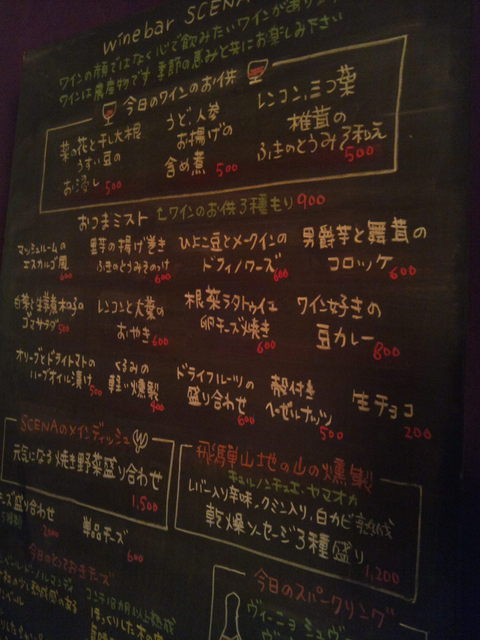 winebar SCENA
ワインの顔ではなく心で飲みたいワインが
ワインは農産物です 季節の恵みと共にお楽しみ下さい
今日のワインのお供
菜の花と干し大根
うすい豆の
お浸し 500
うど、人参
お揚げの
含め煮 500
レンコン、三つ葉
椎茸の
ふきのとうみそ和え
500
おつまミスト
ワインのお供3種もり 900
マッシュルームの
エスカルゴ風 600
里芋の揚げ巻き
ふきのとうみそのっけ
600
ひよこ豆とメークインの
ドフィノワーズ
600
男爵芋と舞茸の
コロッケ 600
白菜と生きくらげの
ゴマサラダ 500
レンコンと大葉の
おやき 600
根菜ラタトゥイユ
卵チーズ焼き
600
ワイン好きの
豆カレー
800
オリーブとドライトマトの
ハーブオイル漬け 500
くるみの
軽い燻製
400
ドライフルーツの
盛り合わせ
600
殻付き
ヘーゼルナッツ
500
生チョコ
200
SCENAのメインディッシュ
元気になる焼き野菜盛り合わせ
1,500
飛騨山地の山の燻製
キュルノンチュエ・ヤマオカ
レバー入り辛味、クミン入り、白カビ熟成
乾燥ソーセージ3種盛り
1,200
ーズ盛り合わせ
単品チーズ
600
今日のとっておきチーズ
コンテ18カ月以上熟成
今日のスパークリング